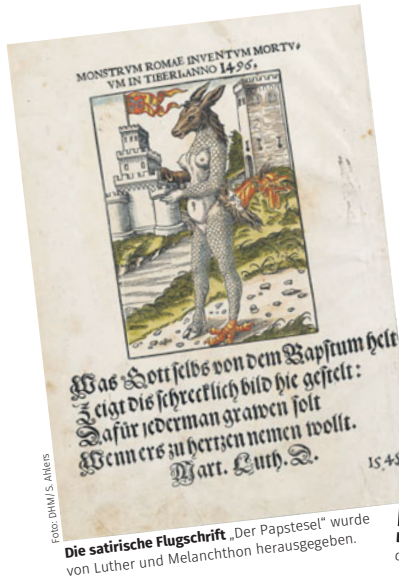 MONSTRVM ROMAE INVENTVM MORTV-
VM IN TIBERI. ANNO 1496.
Was Gott selbs von dem Bapstum helt
Zeigt dis schrecklich bild hie gestelt:
Dafür jederman grawen solt
Wenn ers zu hertzen nemen wollt.
Mart. Luth. D.
Foto: DHM/S. Ahlers
Die satirische Flugschrift „Der Papstesel“ wurde
von Luther und Melanchthon herausgegeben.